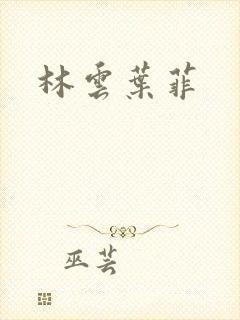 林雲葉菲
巫芸